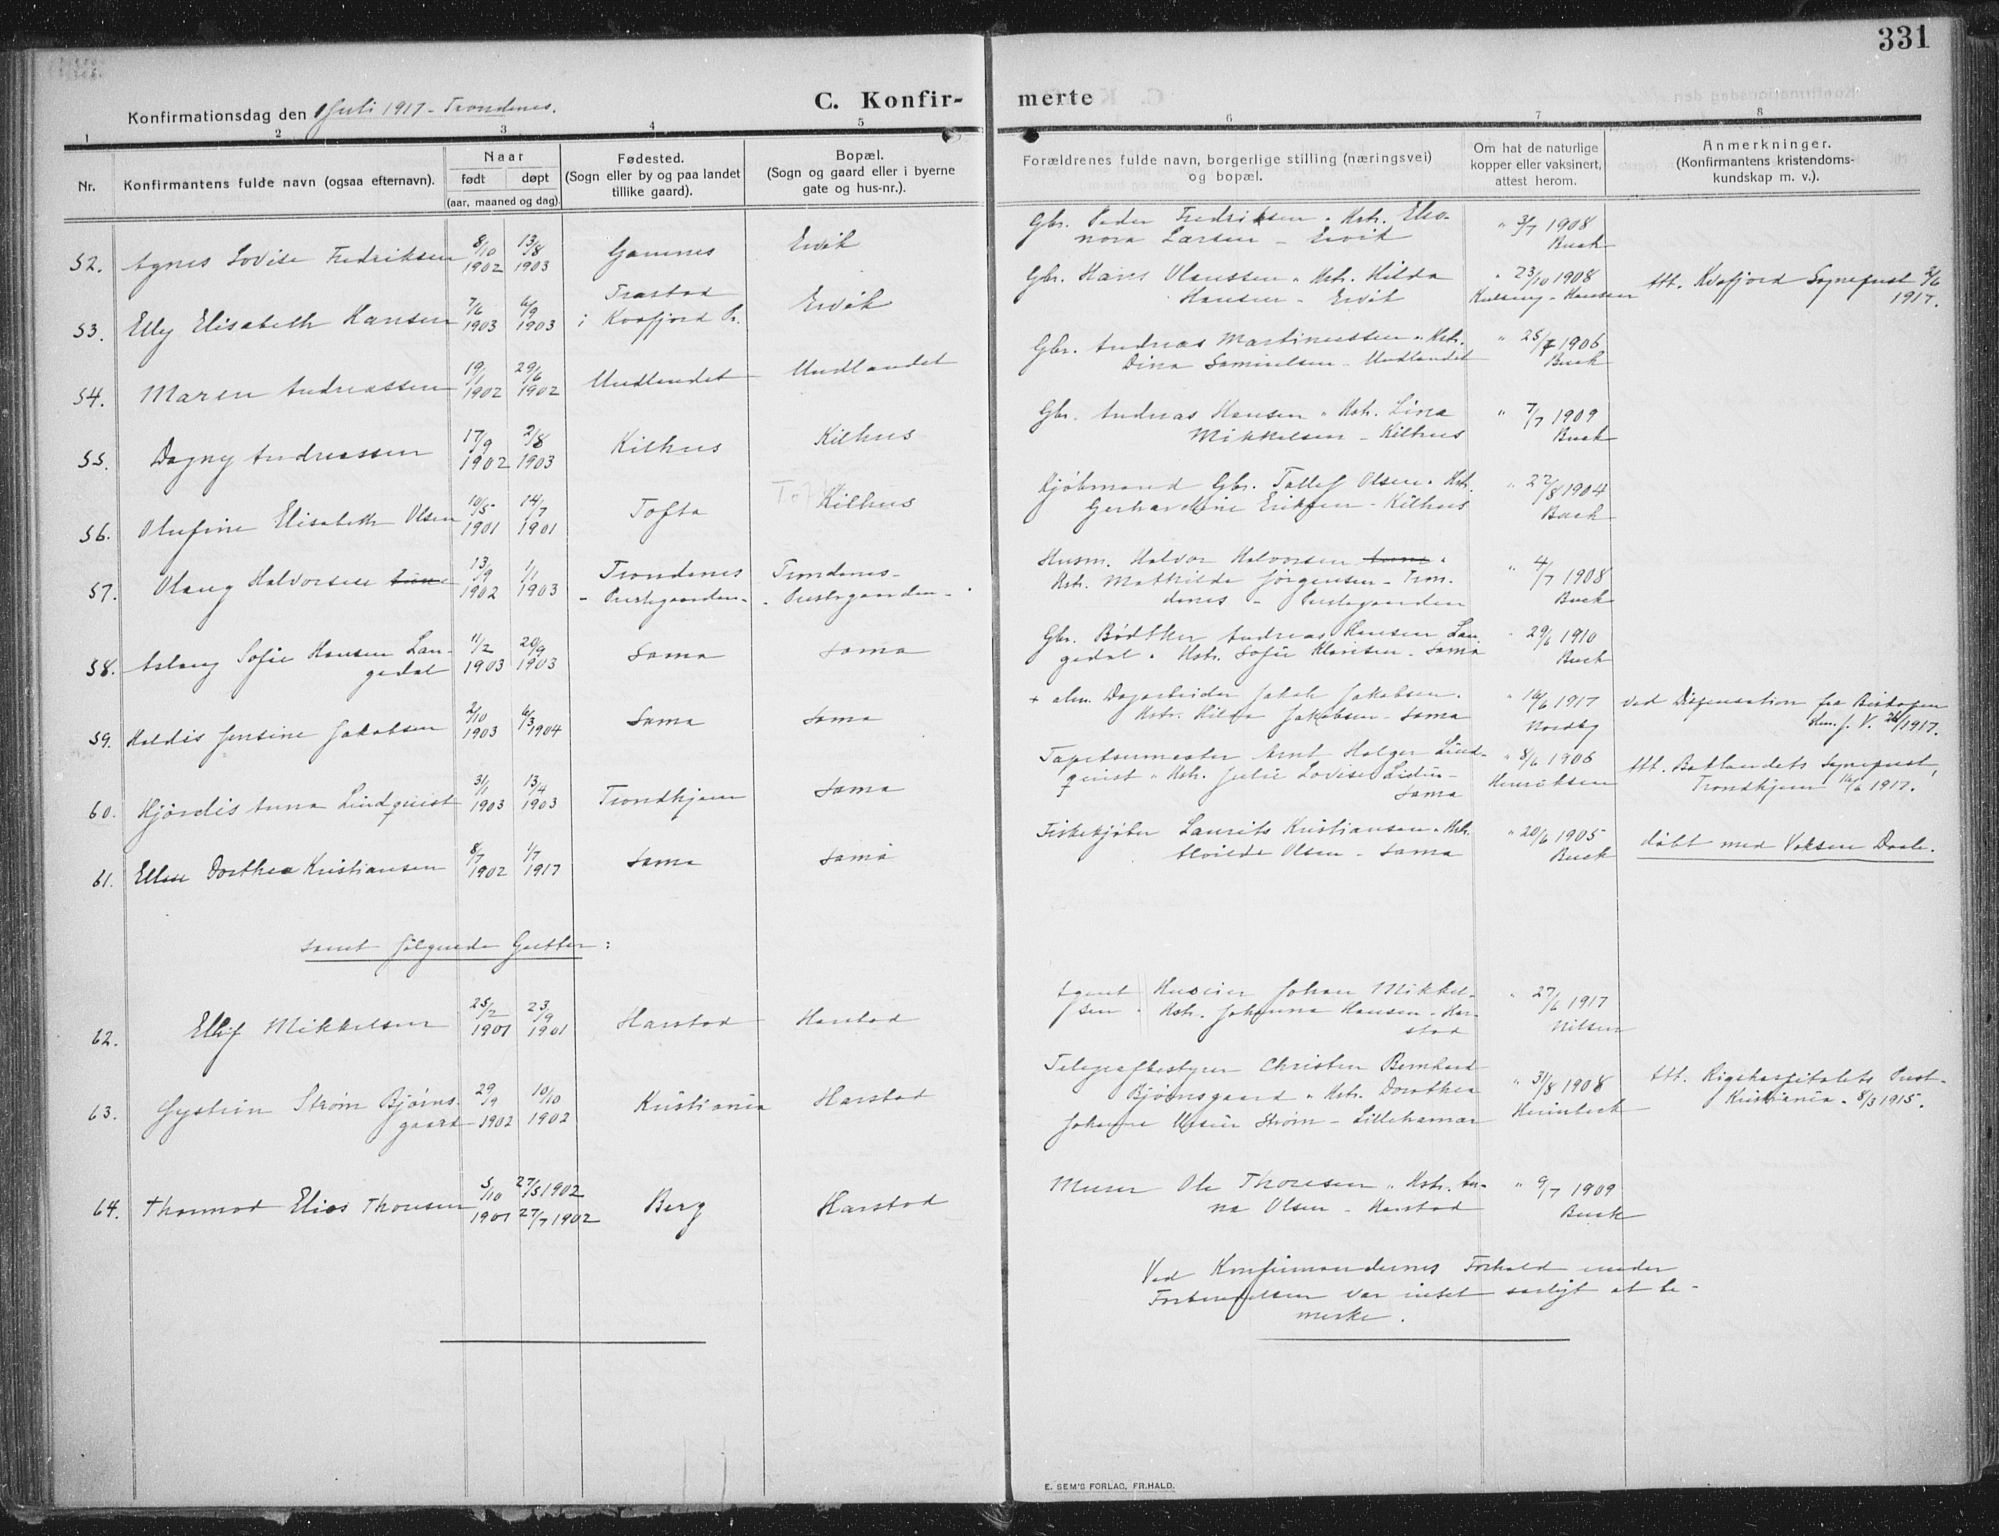 331
Konfirmationsdag den 1 Juli 1917 - Trondenes.
C. Konfir-
merte
1 2 3 4 5 6 7 8
Nr.
Konfirmantens fulde navn (ogsaa efternavn).
Naar
født døpt
(aar, maaned og dag).
Fødested.
(Sogn eller by og paa landet
tillike gaard).
Bopæl.
(Sogn og gaard eller i byerne
gate og hus-nr.).
Forældrenes fulde navn, borgerlige stilling (næringsvei)
og bopæl.
Om hat de naturlige
kopper eller vaksinert,
attest herom.
Anmerkninger.
(Konfirmantens kristendoms-
kundskap m. v.).
52. Agnes Lovise Fredriksen 8/10 1902 13/8 1903 Gamnes Ervik
Gbr. Peder Fredriksen. Hstr. Eleo-
nora Larsen - Ervik
" 3/7 1908
Buck
53. Elly Elisabeth Hansen 7/6 1903 6/9 1903 Trastad
i Kvæfjord Pr. Ervik
Gbr. Hans Olaussen " Hstr. Hilda
Hansen - Ervik
" 23/10 1908
Hansen
Att. Kvæfjord Sognepræst 2/6
1917.
54. Maren Andreassen 19/1 1902 29/6 1902 Undlandet Undlandet
Gbr. Andreas Martinussen " Hstr.
Dina Samuelsen - Undlandet
" 25/7 1906
Buck
55. Dagny Andreassen 17/9 1902 2/8 1903 Kilhus Kilhus
Gbr. Andreas Hansen " Hstr. Lina
Mikkelsen - Kilhus
" 7/7 1909
Buck
56. Olufine Elisabeth Olsen 10/5 1901 14/7 1901 Tofta Kilhus
Kjøbmand Gbr. Tollef Olsen " Hstr.
Gerhardine Eriksen - Kilhus
" 22/8 1904
Buck
57. Olaug Halvorsen 13/9 1902 1/1 1903 Trondenes
- Prestegaarden - Trondenes-
- Prestegaarden -
Husm. Halvor Halvorsen "
Hstr. Mathilde Jørgensen - Tron-
denes - Prestegaarden
" 4/7 1908
Buck
58. Aslaug Sofie Hansen Lan-
gedal 11/2 1903 20/9 1903 Sama Sama
Gbr. Bødtker Andreas Hansen Lan-
gedal " Hstr. Sofie Klausen - Sama
" 29/6 1910
Buck
59. Haldis Jensine Jakobsen 2/10 1903 6/3 1904 Sama Sama
+ alm. Dagarbeider Jakob Jakobsen.
Hstr. Hilda Jakobsen - Sama
" 16/6 1917
Nordby
Ved Dispensation fra Biskopen
1917.
60. Hjørdis Anna Lindquist 31/1 1903 13/4 1903 Trondhjem Sama
Tapetsermester Arnt Holger Lind-
quist " Hstr. Julie Lovise -
Sama
" 8/6 1906
Henriksen
Att. Baklandets Sognepræst,
Trondhjem 16/6 1917.
61. Ellen Dorthea Kristiansen 8/7 1902 1/7 1917 Sama Sama
Fiskekjøber Laurits Kristiansen " Hstr.
Alvilde Olsen - Sama
" 20/6 1905
Buck
døbt med Voksen Daab.
samt følgende Gutter:
62. Ellif Mikkelsen 25/2 1901 23/9 1901 Harstad Harstad
Agent Huseier Johan Mikkel-
sen " Hstr. Johanna Hansen - Har-
stad
" 27/6 1917
Nilsen
63. Øystein Strøm Bjørns-
gaard 29/9 1902 10/10 1902 Kristiania Harstad
Telegrafbestyrer Christen Bernhard
Bjørnsgaard " Hstr. Dorothea
Johanne Strøm - Lillehamar
" 31/8 1908
Att. Rigshospitalets Prest-
Kristiania - 8/3 1915.
64. Thormod Elias Thoresen 5/10 1901 27/5 1902
27/7 1902 Berg Harstad
Murer Ole Thoresen " Hstr. An-
na Olsen - Harstad
" 9/7 1909
Buck
Ved Konfirmandernes Forhold under
Forberedelsen var intet særligt at be-
merke.
E. SEM'S FORLAG, FR.HALD.